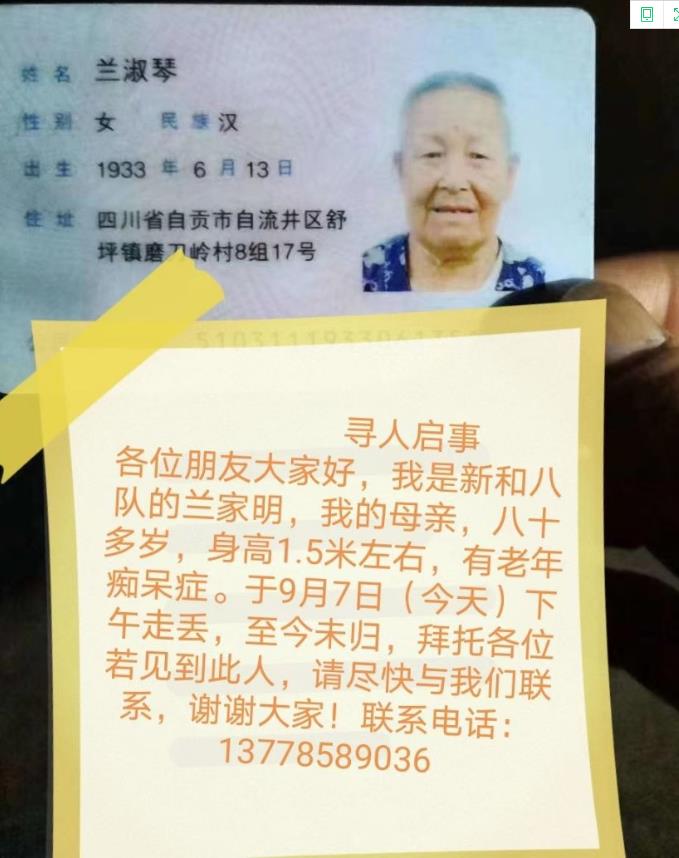 姓名 兰淑琴
性别 女 民族 汉
出生 1933 年 6 月 13 日
住址 四川省自贡市自流井区舒
坪镇磨刀岭村8组17号
寻人启事
各位朋友大家好，我是新和八
队的兰家明，我的母亲，八十
多岁，身高1.5米左右，有老年
痴呆症。于9月7日（今天）下
午走丢，至今未归，拜托各位
若见到此人，请尽快与我们联
系，谢谢大家！联系电话：
13778589036